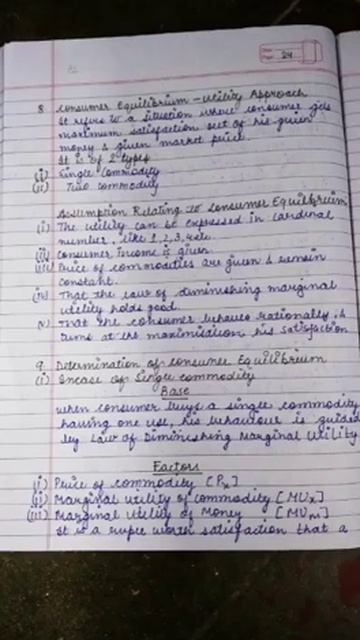 Page 24
8 Consumer Equilibrium - Utility Approach
It refers to a situation where consumer gets
maximum satisfaction out of his given
money & given market price.
It is of 2 types
(i) Single Commodity
(ii) Two commodity
Assumption Relating to Consumer Equilibrium
(i) The utility can be expressed in cardinal
number, like 1, 2, 3, 4 etc.
(ii) Consumer Income is given.
(iii) Price of commodities are given & remain
constant.
(iv) That the law of diminishing marginal
utility holds good.
(v) That the consumer behaves rationally &
aims at the maximisation his satisfaction
9 Determination of consumer Equilibrium
(i) Incase of Single commodity
Base
When consumer buys a single commodity
having one use, his behaviour is guided
by Law of Diminishing Marginal Utility
Factors
(i) Price of commodity [Px]
(ii) Marginal utility of commodity [MUx]
(iii) Marginal Utility of Money [MUm]
It is a rupee worth satisfaction that a